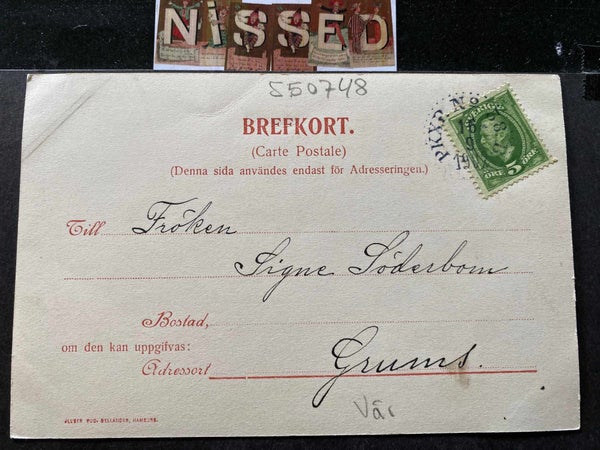 NiSSED
550748
BREFKORT.
(Carte Postale)
(Denna sida användes endast för Adresseringen.)
PKXP. No
SVERIGE
5
ÖRE ÖRE
Till Fröken
Signe Söderbom
Bostad,
om den kan uppgifvas:
Adressort Grums.
Vär
HAMBURG.